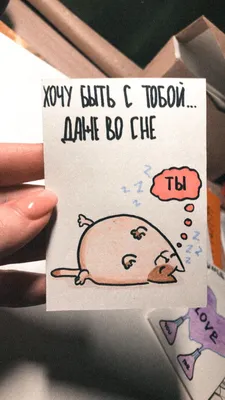 ХОЧУ БЫТЬ С ТОБОЙ...
ДАЖЕ ВО СНЕ
ТЫ
z z z
z z z
Love